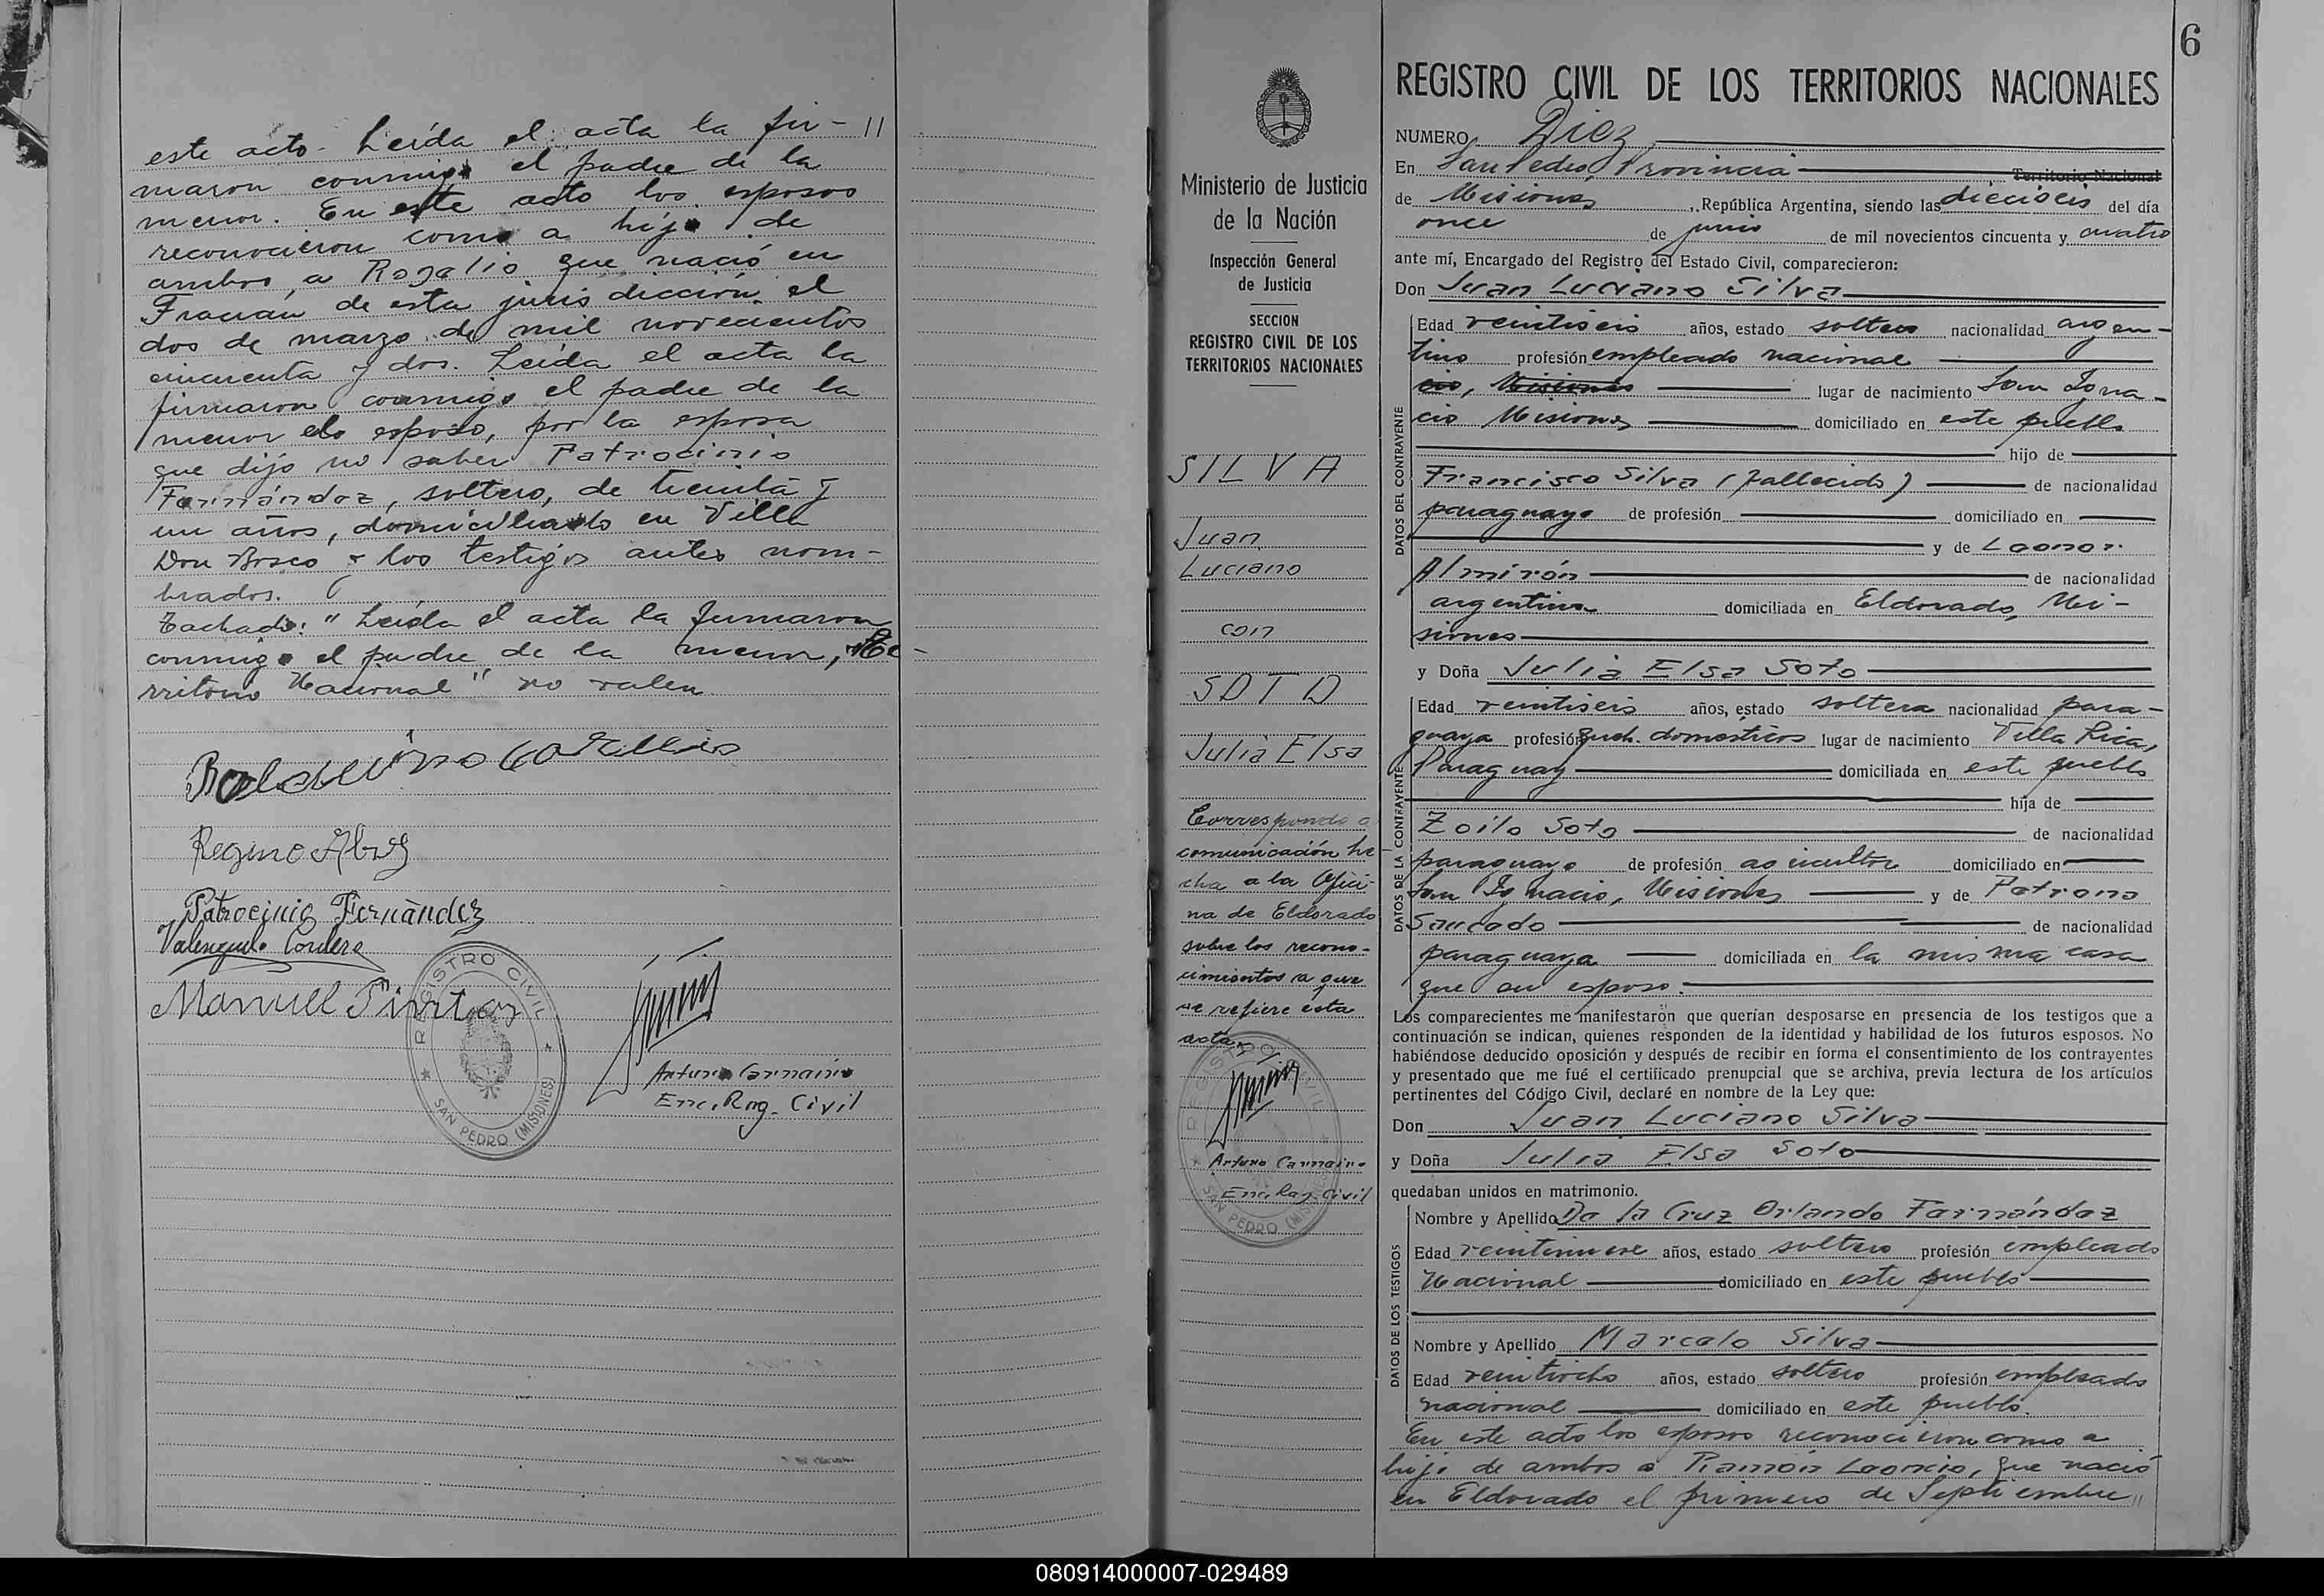 este acto. Leída el acta la fir- //
maron conmigo el padre de la
menor. En este acto los esposos
reconocieron como a hijo de
ambos, a Rogelio que nació en
Fracran de esta jurisdicción el
dos de marzo de mil novecientos
cincuenta y dos. Leída el acta la
firmaron conmigo el padre de la
menor el esposo, por la esposa
que dijo no saber Patrocinio
Fernández, soltero, de treinta y
un años, domiciliado en Villa
Don Bosco y los testigos antes nom-
brados.
Tachado: "Leída el acta la firmaron
conmigo el padre de la menor, Te-
rritorio Nacional" no valen
Regino
Patrocinio Fernàndez
Cordero
Manuel
REGISTRO CIVIL
SAN PEDRO (MISIONES)
Arturo
Enc. Reg. Civil
Ministerio de Justicia
de la Nación
Inspección General
de Justicia
SECCION
REGISTRO CIVIL DE LOS
TERRITORIOS NACIONALES
SILVA
Juan
Luciano
con
SOTO
Julia Elsa
Corresponde a
comunicación he-
cha a la Ofici-
na de Eldorado
sobre los recono-
cimientos a que
se refiere esta
acta
REGISTRO CIVIL
Arturo
Enc. Reg. Civil
SAN PEDRO (MISIONES)
6
REGISTRO CIVIL DE LOS TERRITORIOS NACIONALES
NUMERO Diez
En San Pedro, Provincia Territorio Nacional
de Misiones, República Argentina, siendo las dieciseis del día
once de junio de mil novecientos cincuenta y cuatro
ante mí, Encargado del Registro del Estado Civil, comparecieron:
Don Juan Luciano Silva
DATOS DEL CONTRAYENTE
Edad veintiseis años, estado soltero nacionalidad argen-
tino profesión empleado nacional
cio, Misiones lugar de nacimiento San Igna-
cio Misiones domiciliado en este pueblo
hijo de
Francisco Silva (fallecido) de nacionalidad
paraguayo de profesión domiciliado en
y de Leonor
Almirón de nacionalidad
argentina domiciliada en Eldorado, Mi-
siones
y Doña Julia Elsa Soto
DATOS DE LA CONTRAYENTE
Edad veintiseis años, estado soltera nacionalidad para-
guaya profesión queh. domésticos lugar de nacimiento Villa Rica,
Paraguay domiciliada en este pueblo
hija de
Zoilo Soto de nacionalidad
paraguayo de profesión agricultor domiciliado en
San Ignacio, Misiones y de Petrona
Saucedo de nacionalidad
paraguaya domiciliada en la misma casa
que su esposo.
Los comparecientes me manifestaron que querían desposarse en presencia de los testigos que a
continuación se indican, quienes responden de la identidad y habilidad de los futuros esposos. No
habiéndose deducido oposición y después de recibir en forma el consentimiento de los contrayentes
y presentado que me fué el certificado prenupcial que se archiva, previa lectura de los artículos
pertinentes del Código Civil, declaré en nombre de la Ley que:
Don Juan Luciano Silva
y Doña Julia Elsa Soto
quedaban unidos en matrimonio.
DATOS DE LOS TESTIGOS
Nombre y Apellido De la Cruz Orlando Fernández
Edad veintinueve años, estado soltero profesión empleado
Nacional domiciliado en este pueblo
Nombre y Apellido Marcelo Silva
Edad veintiocho años, estado soltero profesión empleado
nacional domiciliado en este pueblo.
En este acto los esposos reconocieron como a
hijo de ambos a Ramón Leoncio, que nació
en Eldorado el primero de Septiembre //
080914000007-029489